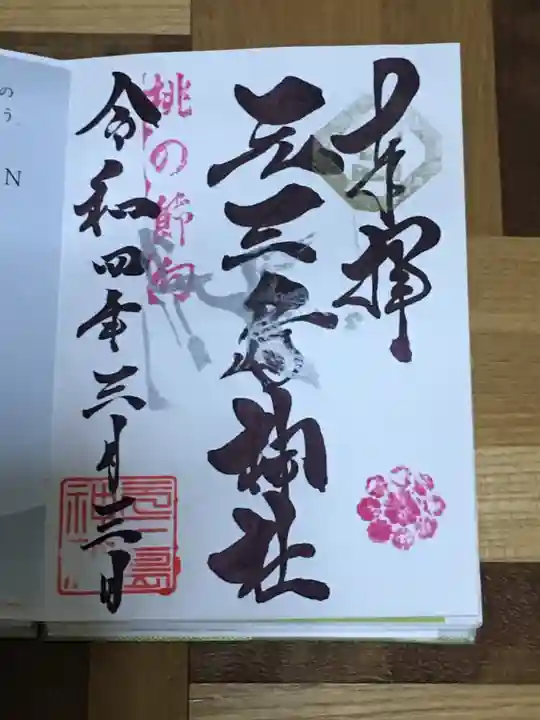 奉拝
元三島神社
桃の節句
令和四年三月三日
の
う
N